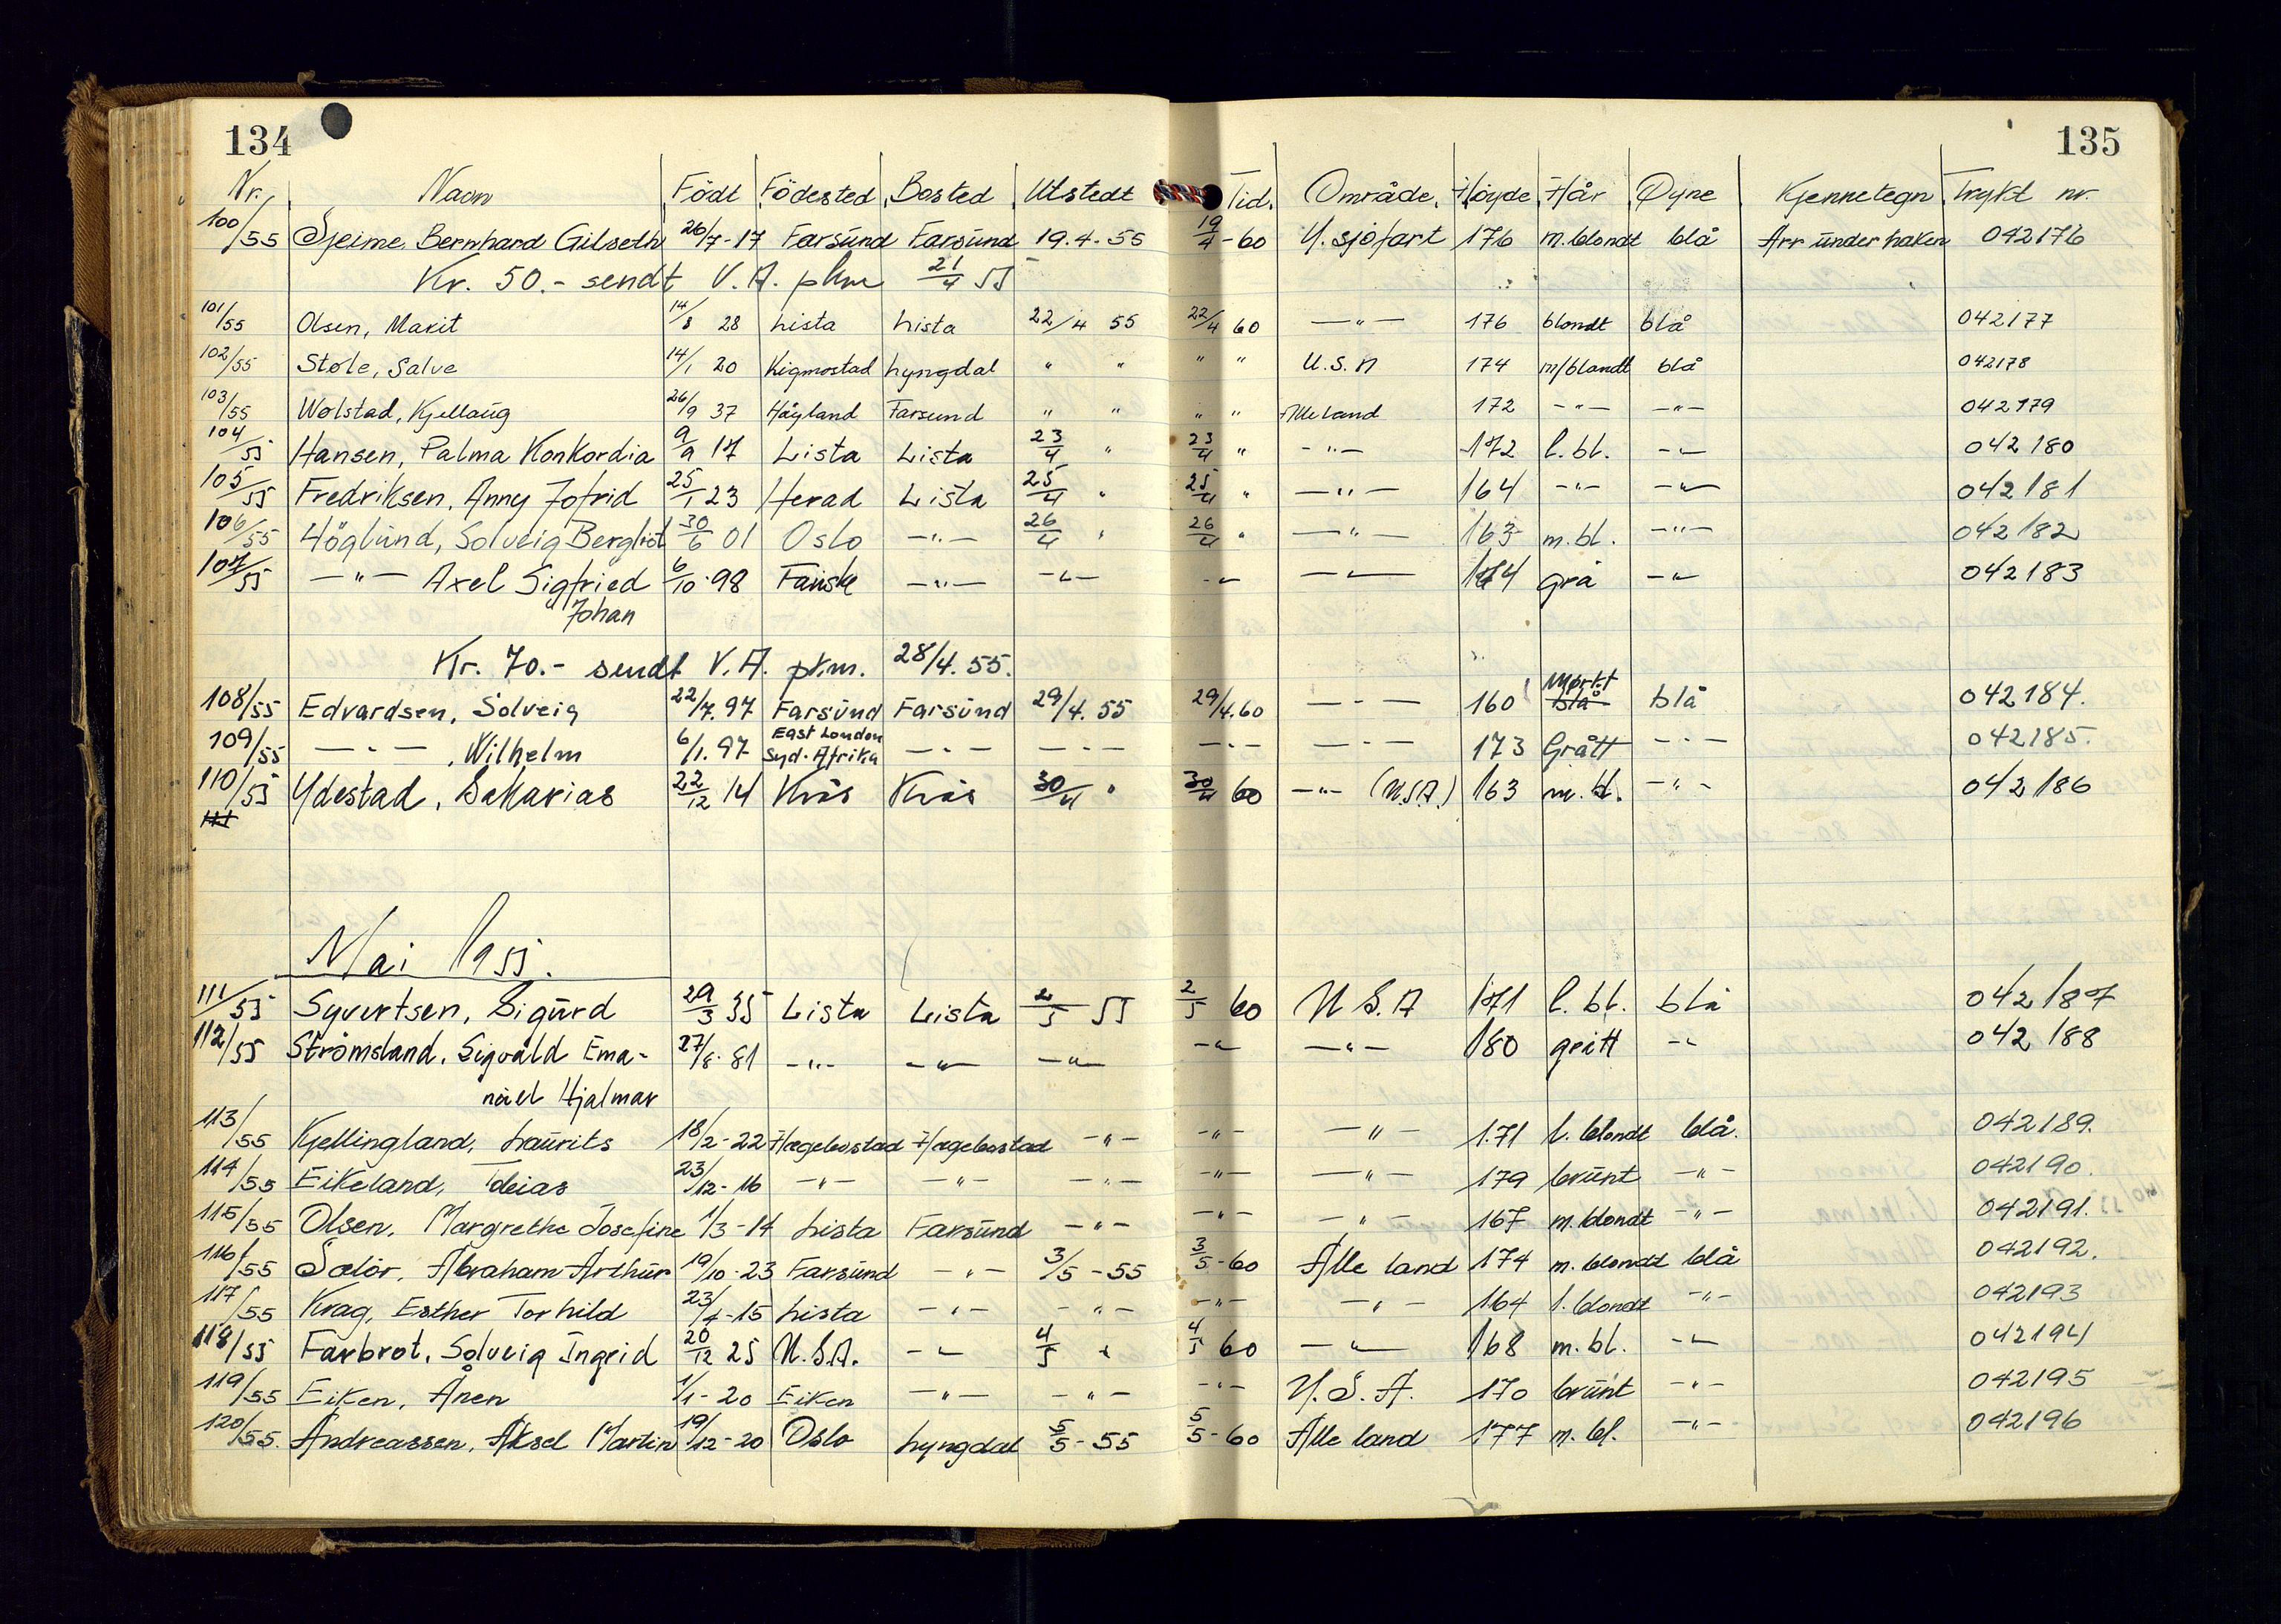 134
135
Nr. Navn Födt Födested Bosted Utstedt Tid. Område. Høyde Hår Øyne Kjennetegn Trykt nr.
100/55 Sjeime Bernhard Gilseth 26/7-17 Farsund Farsund 19.4.55 19/4-60 U. sjöfart 176 m. blondt blå Arr under haken 042176
Kr. 50.- sendt V.A. pkm 21/4 55
101/55 Olsen, Marit 14/8 28 Lista Lista 22/4 55 22/4 60 -"- 176 blondt blå 042177
102/55 Støle, Salve 14/1 20 Kigmostad Lyngdal " " " " U.S.A 174 m/blandt blå 042178
103/55 Wølstad, Kjellaug 26/9 37 Håyland Farsund " " " " Alle land 172 -"- -"- 042179
104/55 Hansen, Palma Konkordia 9/9 17 Lista Lista 23/4 " 23/4 " -"- 172 l. bl. -"- 042180
105/55 Fredriksen, Anny Jofrid 25/1 23 Herad Lista 25/4 " 25/4 " -"- 164 -"- -"- 042181
106/55 Höglund, Solveig Bergliot 30/6 01 Oslo -"- 26/4 " 26/4 " -"- 163 m. bl. -"- 042182
107/55 -"- Axel Sigfried 6/10-98 -"- -"- -"- -"- 174 grå -"- 042183
Johan
Kr. 70.- sendt V.A. pkm. 28/4. 55.
108/55 Edvardsen, Solveig 22/7. 97 Farsund Farsund 29/4. 55 29/4.60 -"- 160 blå Mørkt blå 042184.
109/55 -"-, Wilhelm 6/1. 97 East London Syd-Afrika -"- -"- -"- -"- 173 Grått -"- 042185.
110/55 Ydestad, Sakarias 22/12 14 Kvås Kvås 30/4 " 30/4 60 -"- (U.S.A.) 163 m. bl. -"- 042186
111
Mai 1955.
111/55 Syvertsen, Sigurd 29/3 35 Lista Lista 2/5 55 2/5 60 U S. A 171 l. bl. blå 042187
112/55 Strömsland, Sigvald Ema- 27/8. 81 -"- -"- -"- -"- -"- 180 grått -"- 042188
nuel Hjalmar
113/55 Kjellingland, Laurits 18/2-22 Hægebostad Hægebostad -"- -"- -"- 171 l. blondt blå. 042189.
114/55 Eikeland, Tobias 23/12-16 -"- -"- -"- -"- -"- 179 brunt -"- 042190.
115/55 Olsen, Margrethe Josefine 1/3-14 Lista Farsund -"- -"- -"- 167 m. blondt -"- 042191.
116/55 Sælör, Abraham Arthur 19/10-23 Farsund -"- 3/5-55 3/5-60 Alle land 174 m. blondt blå 042192.
117/55 Krag, Esther Torhild 23/4-15 Lista -"- -"- -"- -"- 164 l. blondt -"- 042193
118/55 Farbrot, Solveig Ingrid 20/12 25 U.S.A. -"- 4/5 " 4/5 60 -"- 168 m. bl. -"- 042194
119/55 Eiken, Ånen 1/1-20 Eiken -"- -"- -"- U.S.A. 170 brunt -"- 042195
120/55. Andreassen, Aksel Martin 19/12-20 Oslo Lyngdal 5/5-55 5/5-60 Alle land 177 m. bl. -"- 042196